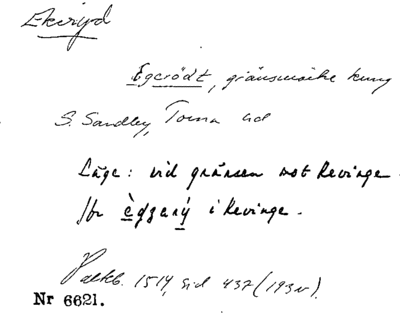 Ekeryd
Egerödt, gränsmärke kring
S. Sandby, Torna hd
Läge: vid gränsen mot Revinge.
Jfr i Revinge.
Palteb. 1514, sid 437 (193v).
Nr 6621.